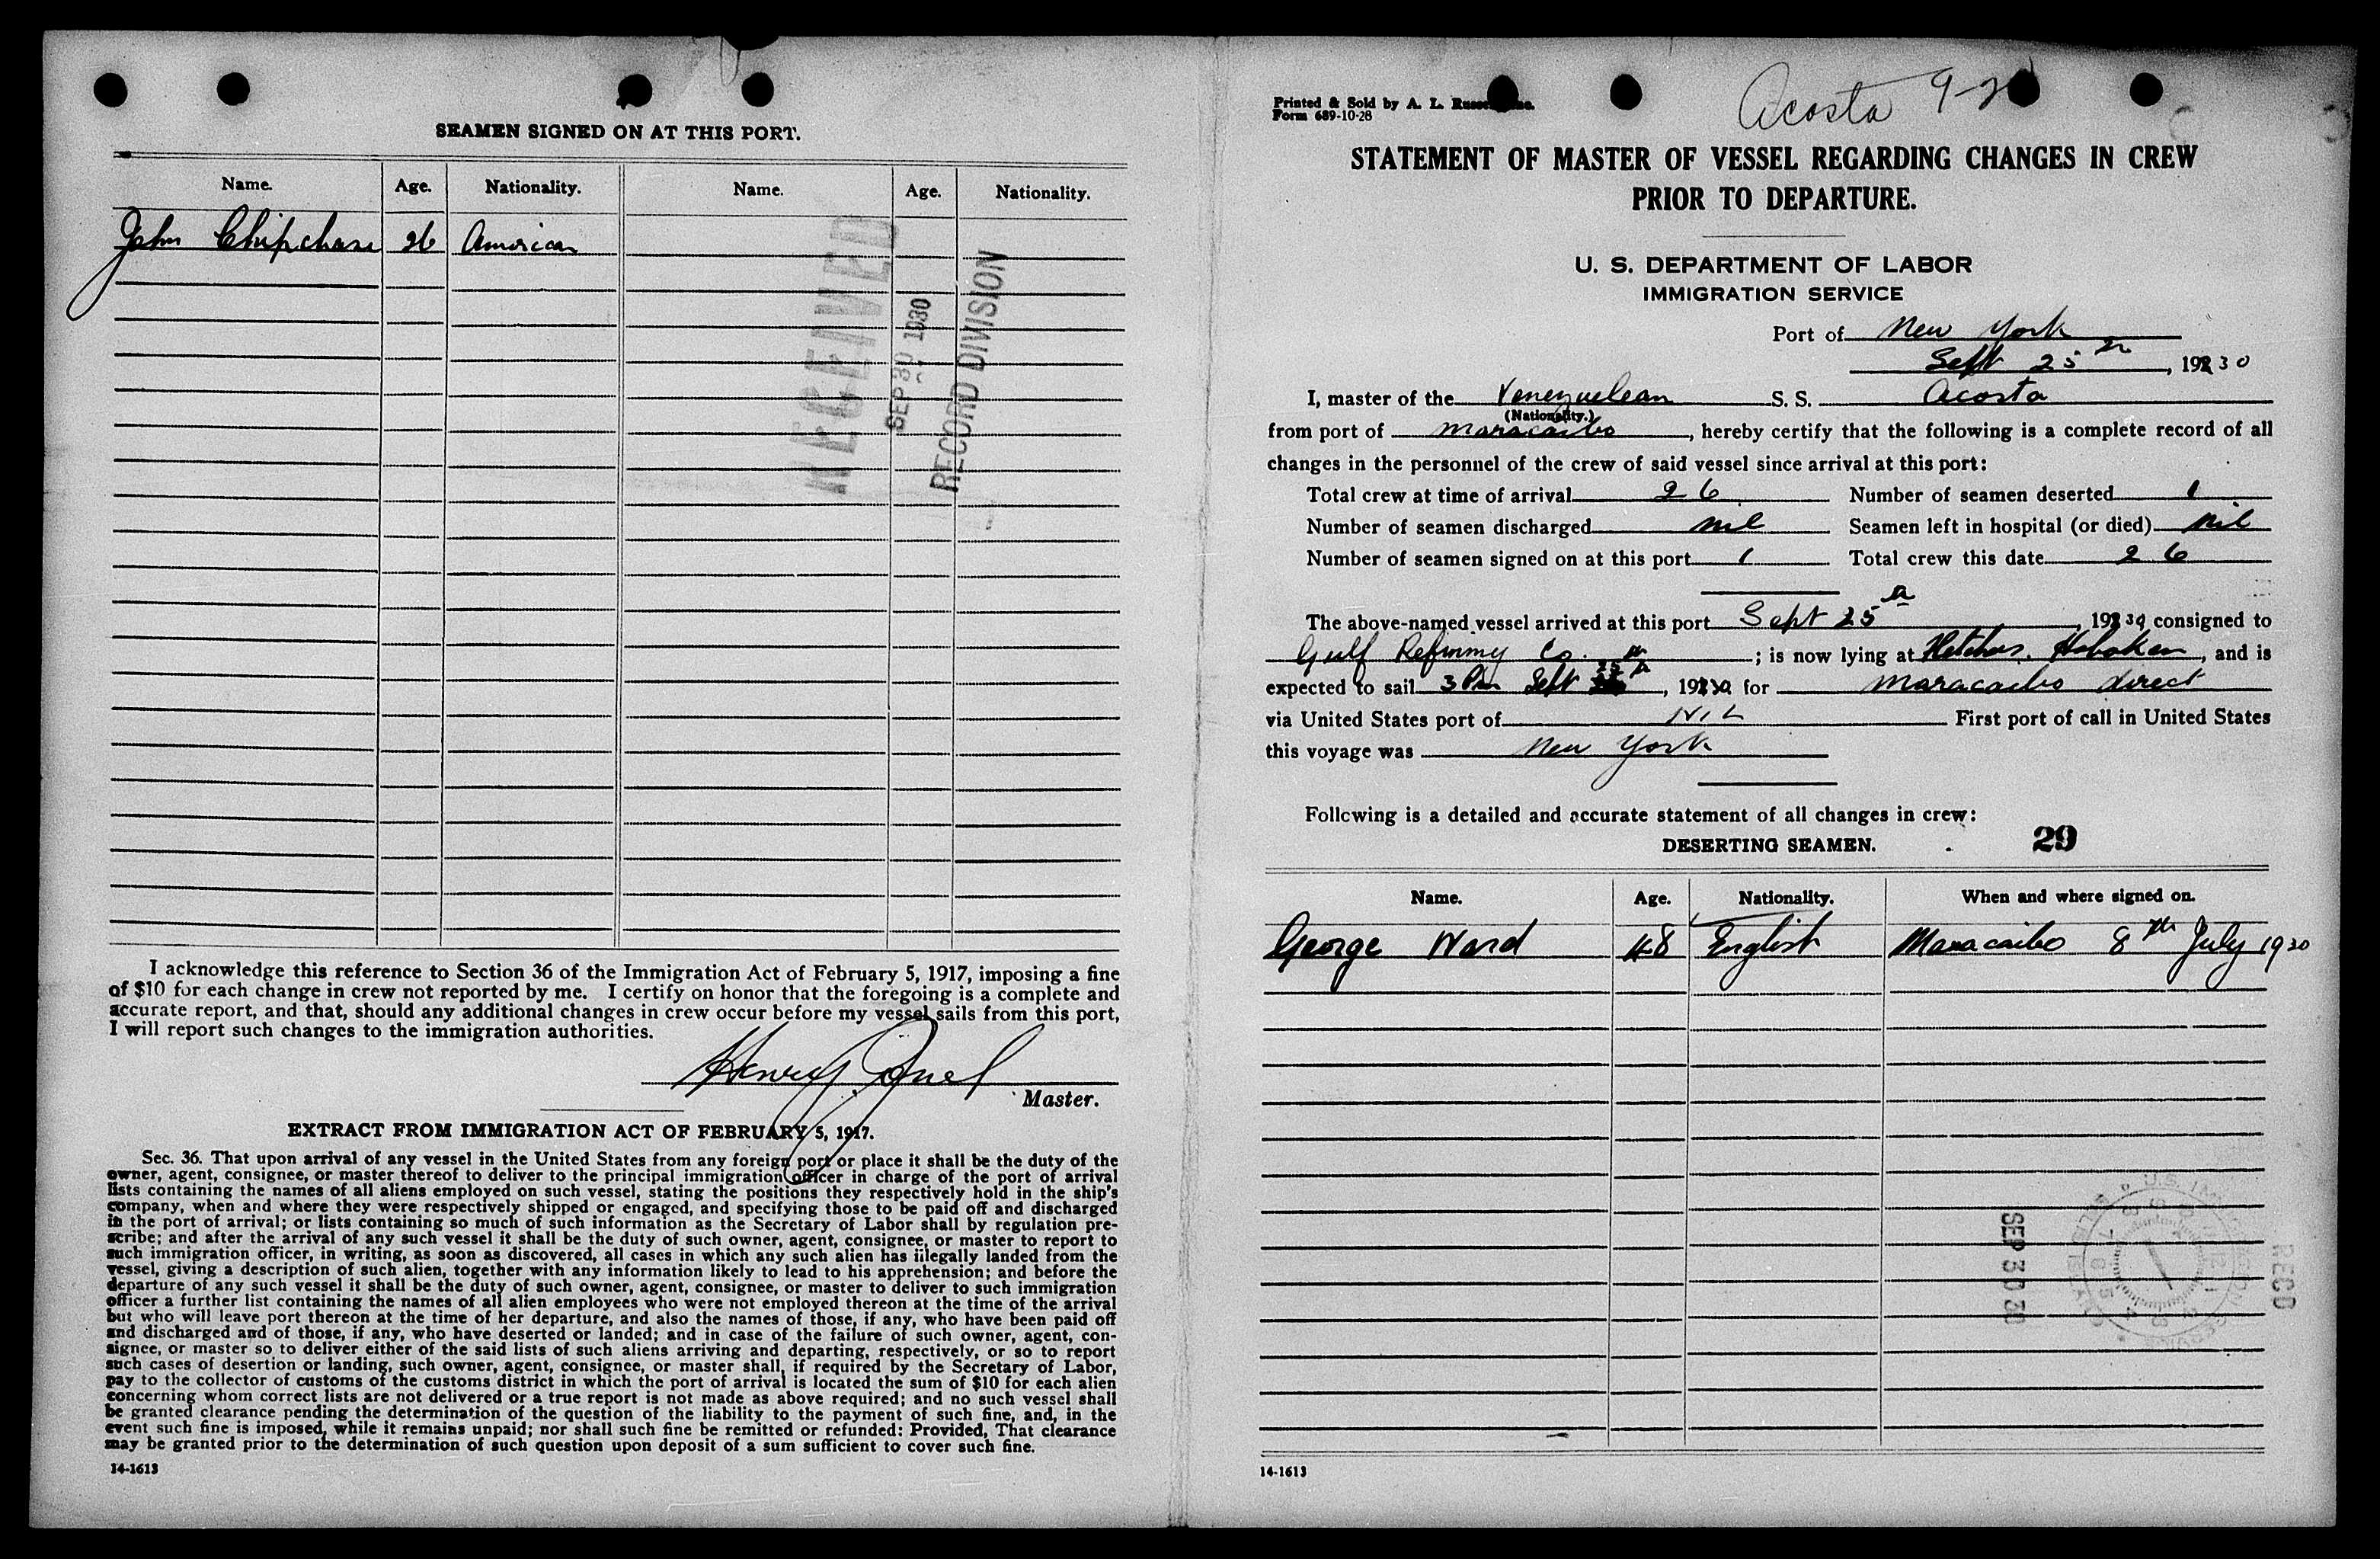 SEAMEN SIGNED ON AT THIS PORT.
Name. Age. Nationality. Name. Age. Nationality.
John Chipchase 26 American
RECEIVED
SEP 30 1930
RECORD DIVISION
I acknowledge this reference to Section 36 of the Immigration Act of February 5, 1917, imposing a fine
of $10 for each change in crew not reported by me. I certify on honor that the foregoing is a complete and
accurate report, and that, should any additional changes in crew occur before my vessel sails from this port,
I will report such changes to the immigration authorities.
Henry
Master.
EXTRACT FROM IMMIGRATION ACT OF FEBRUARY 5, 1917.
Sec. 36. That upon arrival of any vessel in the United States from any foreign port or place it shall be the duty of the
owner, agent, consignee, or master thereof to deliver to the principal immigration officer in charge of the port of arrival
lists containing the names of all aliens employed on such vessel, stating the positions they respectively hold in the ship's
company, when and where they were respectively shipped or engaged, and specifying those to be paid off and discharged
in the port of arrival; or lists containing so much of such information as the Secretary of Labor shall by regulation pre-
scribe; and after the arrival of any such vessel it shall be the duty of such owner, agent, consignee, or master to report to
such immigration officer, in writing, as soon as discovered, all cases in which any such alien has illegally landed from the
vessel, giving a description of such alien, together with any information likely to lead to his apprehension; and before the
departure of any such vessel it shall be the duty of such owner, agent, consignee, or master to deliver to such immigration
officer a further list containing the names of all alien employees who were not employed thereon at the time of the arrival
but who will leave port thereon at the time of her departure, and also the names of those, if any, who have been paid off
and discharged and of those, if any, who have deserted or landed; and in case of the failure of such owner, agent, con-
signee, or master so to deliver either of the said lists of such aliens arriving and departing, respectively, or so to report
such cases of desertion or landing, such owner, agent, consignee, or master shall, if required by the Secretary of Labor,
pay to the collector of customs of the customs district in which the port of arrival is located the sum of $10 for each alien
concerning whom correct lists are not delivered or a true report is not made as above required; and no such vessel shall
be granted clearance pending the determination of the question of the liability to the payment of such fine, and, in the
event such fine is imposed, while it remains unpaid; nor shall such fine be remitted or refunded: Provided, That clearance
may be granted prior to the determination of such question upon deposit of a sum sufficient to cover such fine.
14-1613
Printed & Sold by A. L.
Form 689-10-28
Acosta
STATEMENT OF MASTER OF VESSEL REGARDING CHANGES IN CREW
PRIOR TO DEPARTURE.
U. S. DEPARTMENT OF LABOR
IMMIGRATION SERVICE
Port of New York
Sept 25th, 1930
I, master of the Venezuelean S. S. Acosta
(Nationality.)
from port of Maracaibo, hereby certify that the following is a complete record of all
changes in the personnel of the crew of said vessel since arrival at this port:
Total crew at time of arrival 26 Number of seamen deserted 1
Number of seamen discharged nil Seamen left in hospital (or died) nil
Number of seamen signed on at this port 1 Total crew this date 26
The above-named vessel arrived at this port Sept 25th 1930 consigned to
Gulf Refining Co. ; is now lying at Hoboken, and is
expected to sail 3 Pm Sept 25th, 1930 for Maracaibo direct
via United States port of NIL First port of call in United States
this voyage was New York
Following is a detailed and accurate statement of all changes in crew:
DESERTING SEAMEN. 29
Name. Age. Nationality. When and where signed on.
George Ward 48 English Maracaibo 8th July 1930
SEP 30 30
RECD
14-1613